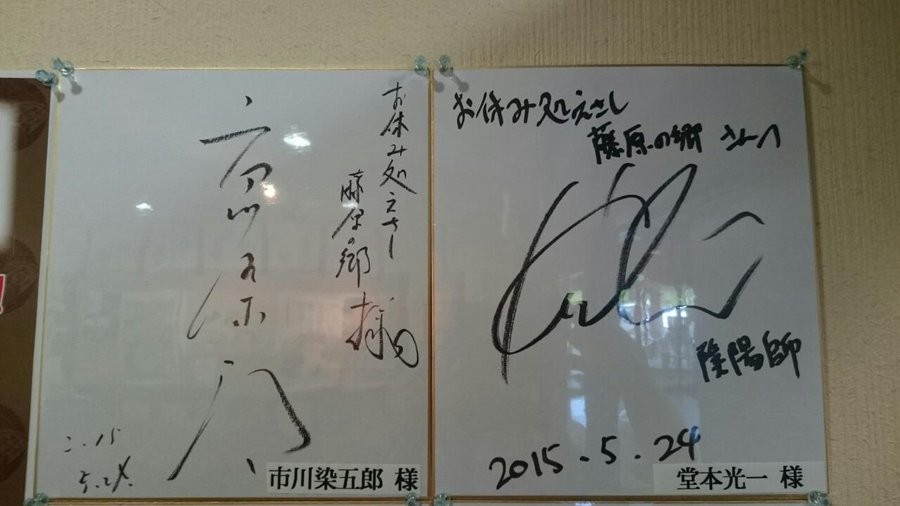 お休み処えさし
藤原の郷
様
市川染五郎
2015
5.24.
市川染五郎 様
お休み処えさし
藤原の郷 さんへ
陰陽師
2015.5.24
堂本光一 様